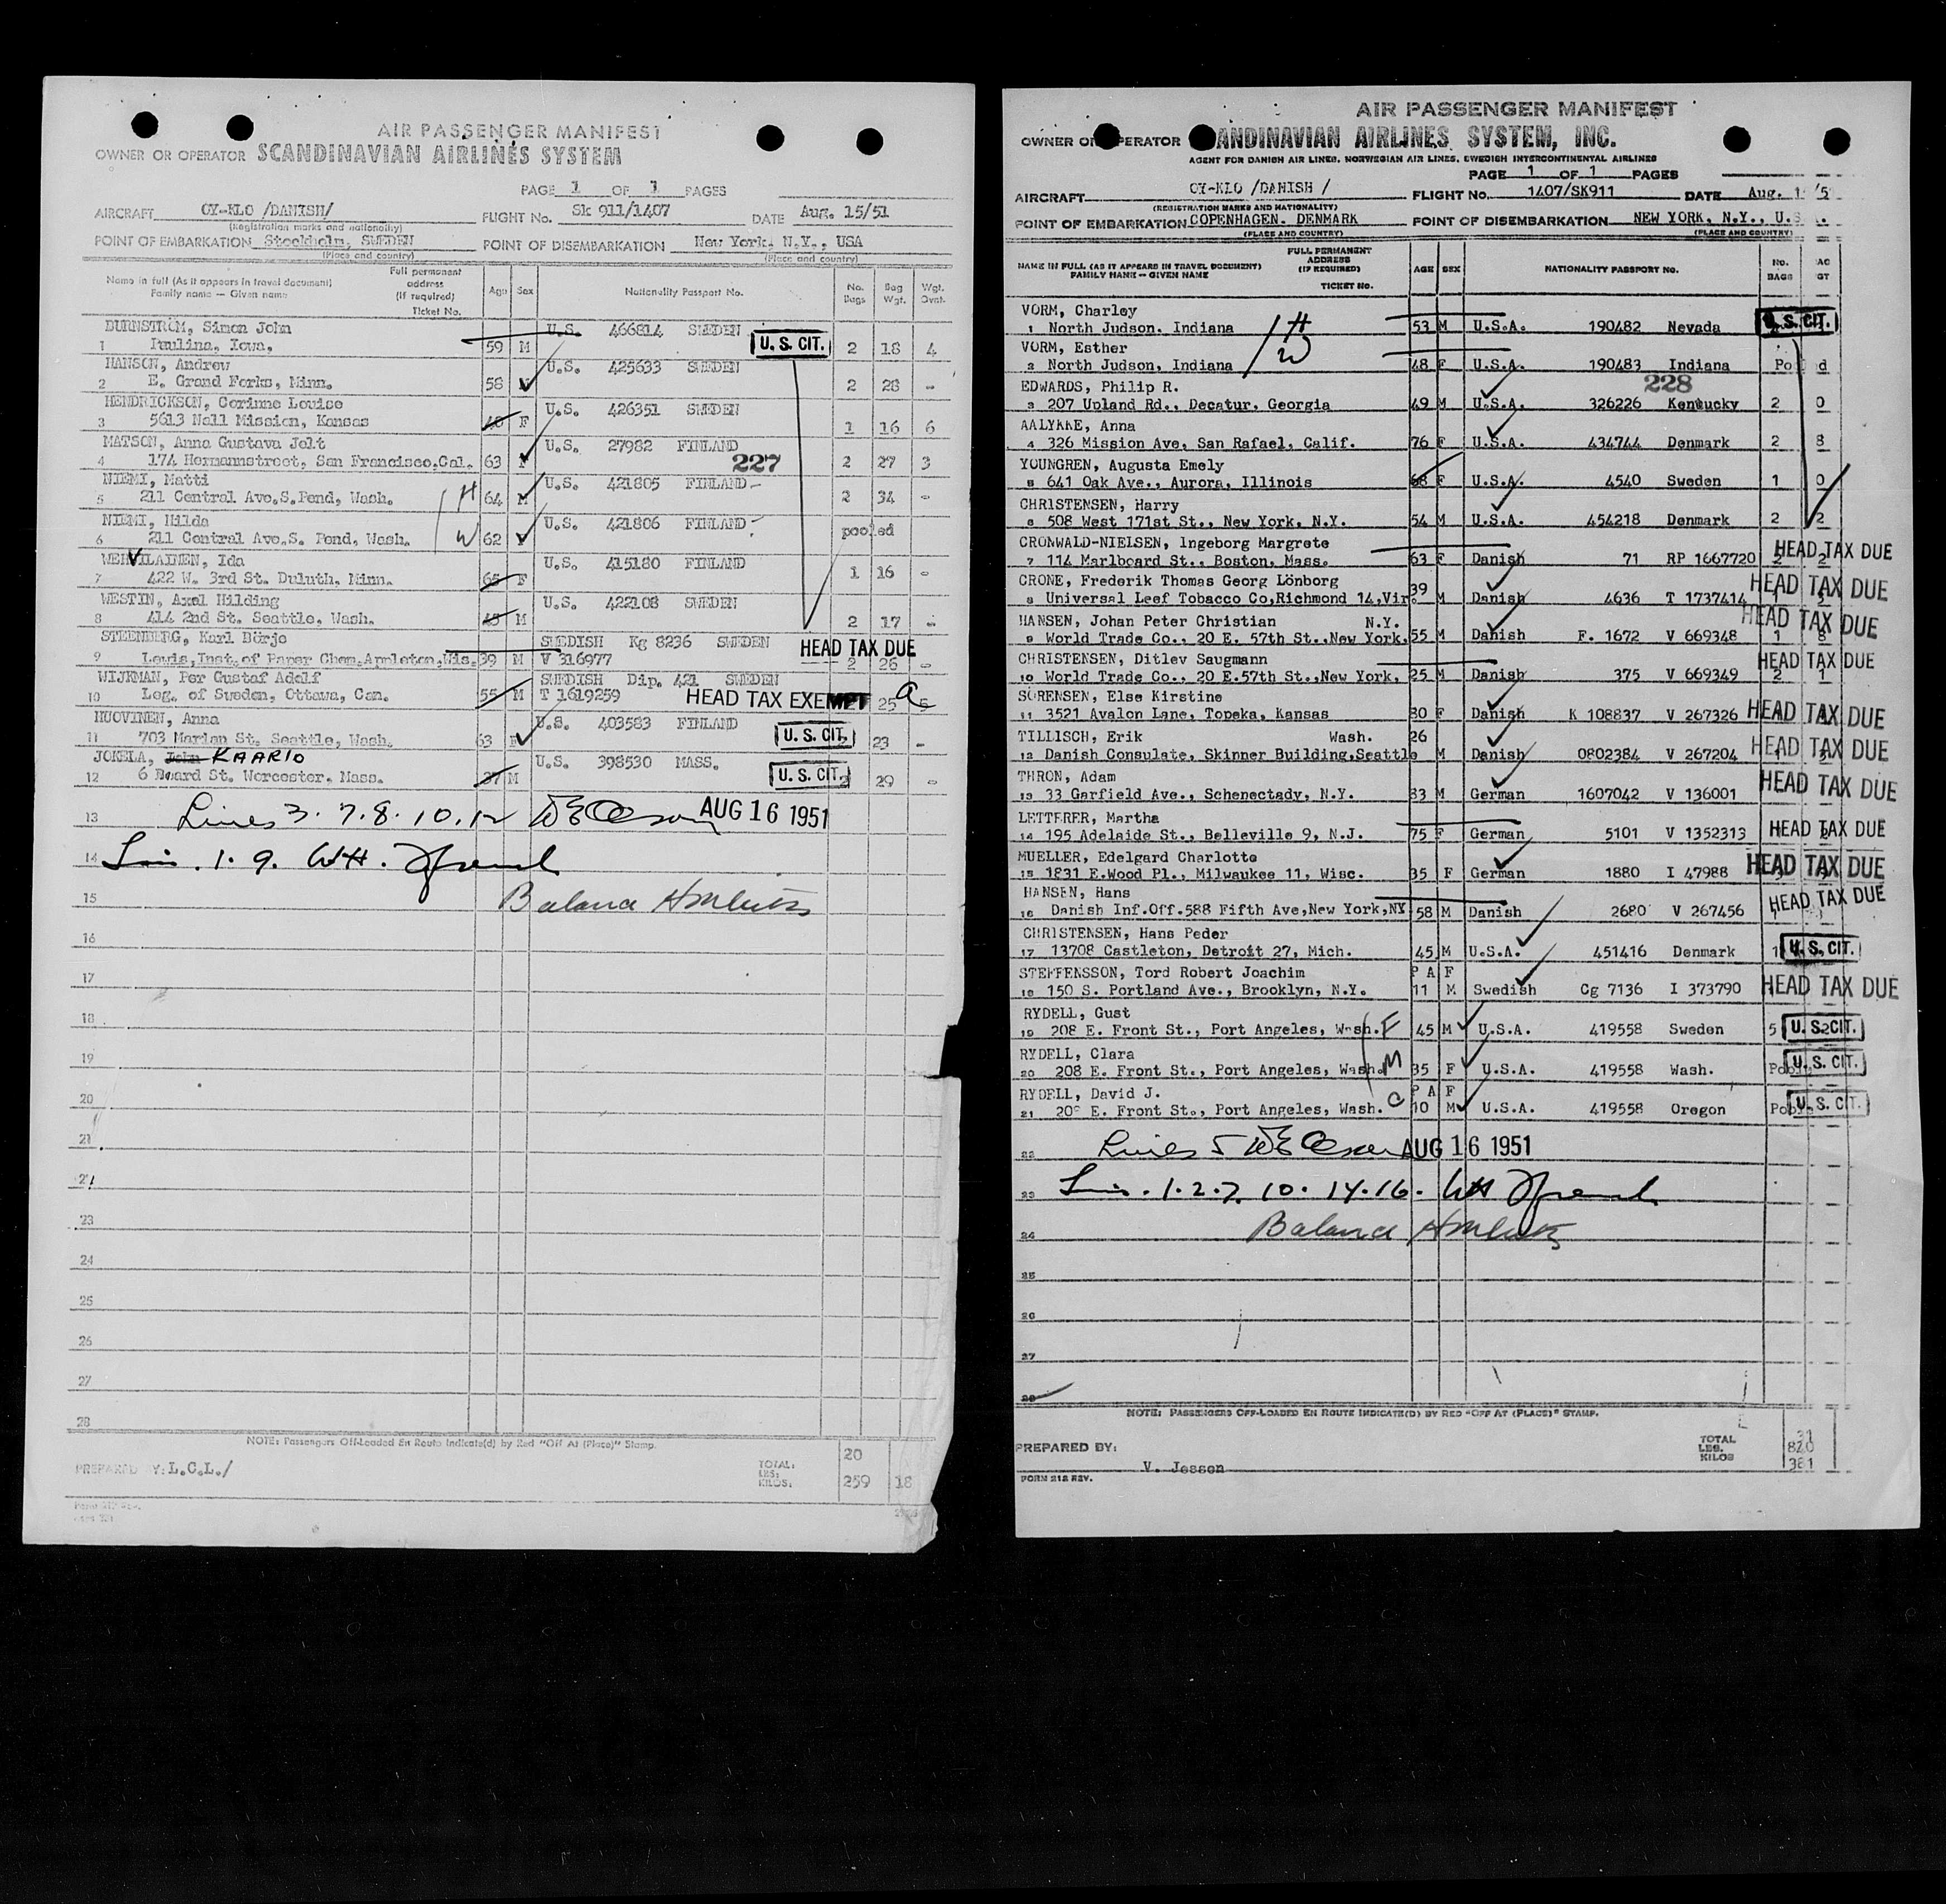 AIR PASSENGER MANIFEST
OWNER OR OPERATOR SCANDINAVIAN AIRLINES SYSTEM
PAGE 1 OF 1 PAGES
AIRCRAFT OY-KLO /DANISH/ FLIGHT No. Sk 911/1407 DATE Aug. 15/51
(Registration marks and nationality)
POINT OF EMBARKATION Stockholm, SWEDEN POINT OF DISEMBARKATION New York, N.Y., USA
(Place and country) (Place and country)
Name in full (As it appears in travel document) Full permanent address (if required) Age Sex Nationality Passport No. No. Bags Bag Wgt. Wgt. Ovnt.
Family name — Given name Ticket No.
DURNSTROM, Simon John U.S. 466814 SWEDEN U. S. CIT.
1 Paulina, Iowa. 59 M 2 18 4
HANSON, Andrew U.S. 425633 SWEDEN
2 E. Grand Forks, Minn. 58 2 28 -
HENDRICKSON, Corinne Louise U.S. 426351 SWEDEN
3 5613 Nall Mission, Kansas F 1 16 6
MATSON, Anna Gustava Jolt U.S. 27982 FINLAND
4 174 Hermannstreet, San Francisco,Cal. 63 F 227 2 27 3
NIEMI, Matti U.S. 421805 FINLAND
5 211 Central Ave.S.Pend, Wash. H 64 M 2 34 -
NIEMI, Hilda U.S. 421806 FINLAND
6 211 Central Ave.S. Pend, Wash. W 62 F pooled
WEHVILAINEN, Ida U.S. 415180 FINLAND
7 422 W. 3rd St. Duluth, Minn. 65 F 1 16 -
WESTIN, Axel Hilding U.S. 422108 SWEDEN
8 414 2nd St. Seattle, Wash. M 2 17 -
STEENBERG, Karl Börje SWEDISH Kg 8236 SWEDEN HEAD TAX DUE
9 Lewis,Inst.of Paper Chem.Appleton,Wis. 39 M V 316977 2 26 -
WIJKMAN, Per Gustaf Adolf SWEDISH Dip. 421 SWEDEN
10 Leg. of Sweden, Ottawa, Can. 55 M T 1619259 HEAD TAX EXEMPT 25
HUOVINEN, Anna U.S. 403583 FINLAND
11 703 Marian St. Seattle, Wash. 63 F U. S. CIT. 23 -
JOKELA, John KAARLO U.S. 398530 MASS.
12 6 Board St. Worcester. Mass. 37 M U. S. CIT. 29 -
13 Lines 3. 7. 8. 10. 12 AUG 16 1951
14 Lin. 1. 9.
15 Balance
16
17
18
19
20
21
23
24
25
26
27
28
NOTE: Passengers Off-Loaded En Route Indicate(d) by Red "Off At (Place)" Stamp.
PREPARED BY: L.C.L./ TOTAL: 20
LBS:
KILOS. 259 18
AIR PASSENGER MANIFEST
OWNER OR OPERATOR SCANDINAVIAN AIRLINES SYSTEM, INC.
AGENT FOR DANISH AIR LINES, NORWEGIAN AIR LINES, SWEDISH INTERCONTINENTAL AIRLINES
PAGE 1 OF 1 PAGES
AIRCRAFT OY-KLO /DANISH / FLIGHT No. 1407/SK911 DATE Aug.
(REGISTRATION MARKS AND NATIONALITY)
POINT OF EMBARKATION COPENHAGEN. DENMARK POINT OF DISEMBARKATION NEW YORK, N.Y., U.S.
(PLACE AND COUNTRY) (PLACE AND COUNTRY)
NAME IN FULL (AS IT APPEARS IN TRAVEL DOCUMENT) FULL PERMANENT ADDRESS (IF REQUIRED) AGE SEX NATIONALITY PASSPORT NO. NO. BAGS
FAMILY NAME — GIVEN NAME TICKET NO.
VORM, Charley
1 North Judson. Indiana H 53 M U.S.A. 190482 Nevada U. S. CIT.
VORM, Esther
2 North Judson, Indiana W 48 F U.S.A. 190483 Indiana
EDWARDS, Philip R. 228
3 207 Upland Rd., Decatur, Georgia 49 M U.S.A. 326226 Kentucky 2
AALYKKE, Anna
4 326 Mission Ave, San Rafael, Calif. 76 F U.S.A. 434744 Denmark 2 8
YOUNGREN, Augusta Emely
5 641 Oak Ave., Aurora, Illinois 68 F U.S.A. 4540 Sweden 1
CHRISTENSEN, Harry
6 508 West 171st St., New York, N.Y. 54 M U.S.A. 454218 Denmark 2
CRONWALD-NIELSEN, Ingeborg Margrete
7 114 Marlboard St., Boston, Mass. 63 F Danish 71 RP 1667720 HEAD TAX DUE
CRONE, Frederik Thomas Georg Lönborg 39
8 Universal Leef Tobacco Co,Richmond 14,Vir. M Danish 4636 T 1737414 HEAD TAX DUE
HANSEN, Johan Peter Christian N.Y.
9 World Trade Co., 20 E. 57th St.,New York. 55 M Danish F. 1672 V 669348 1 8 HEAD TAX DUE
CHRISTENSEN, Ditlev Saugmann
10 World Trade Co., 20 E.57th St.,New York, 25 M Danish 375 V 669349 2 1 HEAD TAX DUE
SÖRENSEN, Else Kirstine
11 3521 Avalon Lane, Topeka, Kansas 30 F Danish K 108837 V 267326 HEAD TAX DUE
TILLISCH, Erik Wash. 26
12 Danish Consulate, Skinner Building,Seattle M Danish 0802384 V 267204 HEAD TAX DUE
THRON, Adam
13 33 Garfield Ave., Schenectady, N.Y. 33 M German 1607042 V 136001 HEAD TAX DUE
LETTERER, Martha
14 195 Adelaide St., Belleville 9, N.J. 75 F German 5101 V 1352313 HEAD TAX DUE
MUELLER, Edelgard Charlotte
15 1831 E.Wood Pl., Milwaukee 11, Wisc. 35 F German 1880 I 47988 HEAD TAX DUE
HANSEN, Hans
16 Danish Inf.Off.588 Fifth Ave,New York,NY 58 M Danish 2680 V 267456 HEAD TAX DUE
CHRISTENSEN, Hans Peder
17 13708 Castleton, Detroit 27, Mich. 45 M U.S.A. 451416 Denmark 1 U. S. CIT.
STEFFENSSON, Tord Robert Joachim P A F
18 150 S. Portland Ave., Brooklyn, N.Y. 11 M Swedish Cg 7136 I 373790 HEAD TAX DUE
RYDELL, Gust
19 208 E. Front St., Port Angeles, Wash. F 45 M U.S.A. 419558 Sweden 5 U. S. CIT.
RYDELL, Clara
20 208 E. Front St., Port Angeles, Wash. M 35 F U.S.A. 419558 Wash. U. S. CIT.
RYDELL, David J. P A F
21 208 E. Front St., Port Angeles, Wash. C 10 M U.S.A. 419558 Oregon U. S. CIT.
22 Lines 5 AUG 16 1951
23 Lin. 1. 2. 7. 10. 14. 16.
24 Balance
25
26
27
28
NOTE: PASSENGERS OFF-LOADED EN ROUTE INDICATE(D) BY RED "OFF AT (PLACE)" STAMP.
PREPARED BY: V. Jessen TOTAL 31
LBS. 820
KILOS 381
FORM 212 REV.